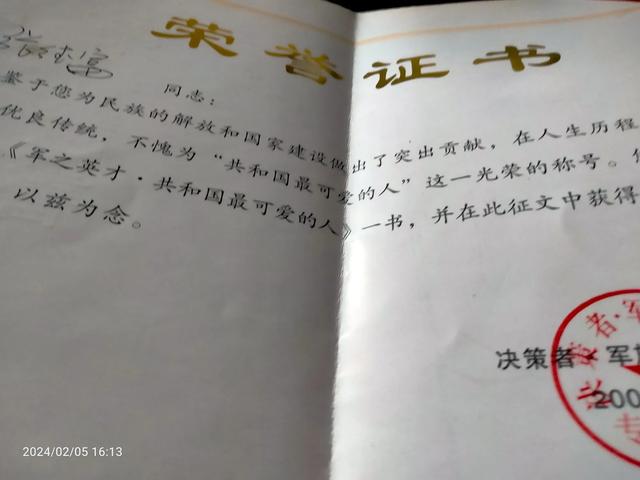 荣誉证书
张 富
同志：
鉴于您为民族的解放和国家建设做出了突出贡献，在人生历程
优良传统，不愧为“共和国最可爱的人”这一光荣的称号。
《军之英才·共和国最可爱的人》一书，并在此征文中获得
以兹为念。
决策者·军
200
决策者·军
专
2024/02/05 16:13